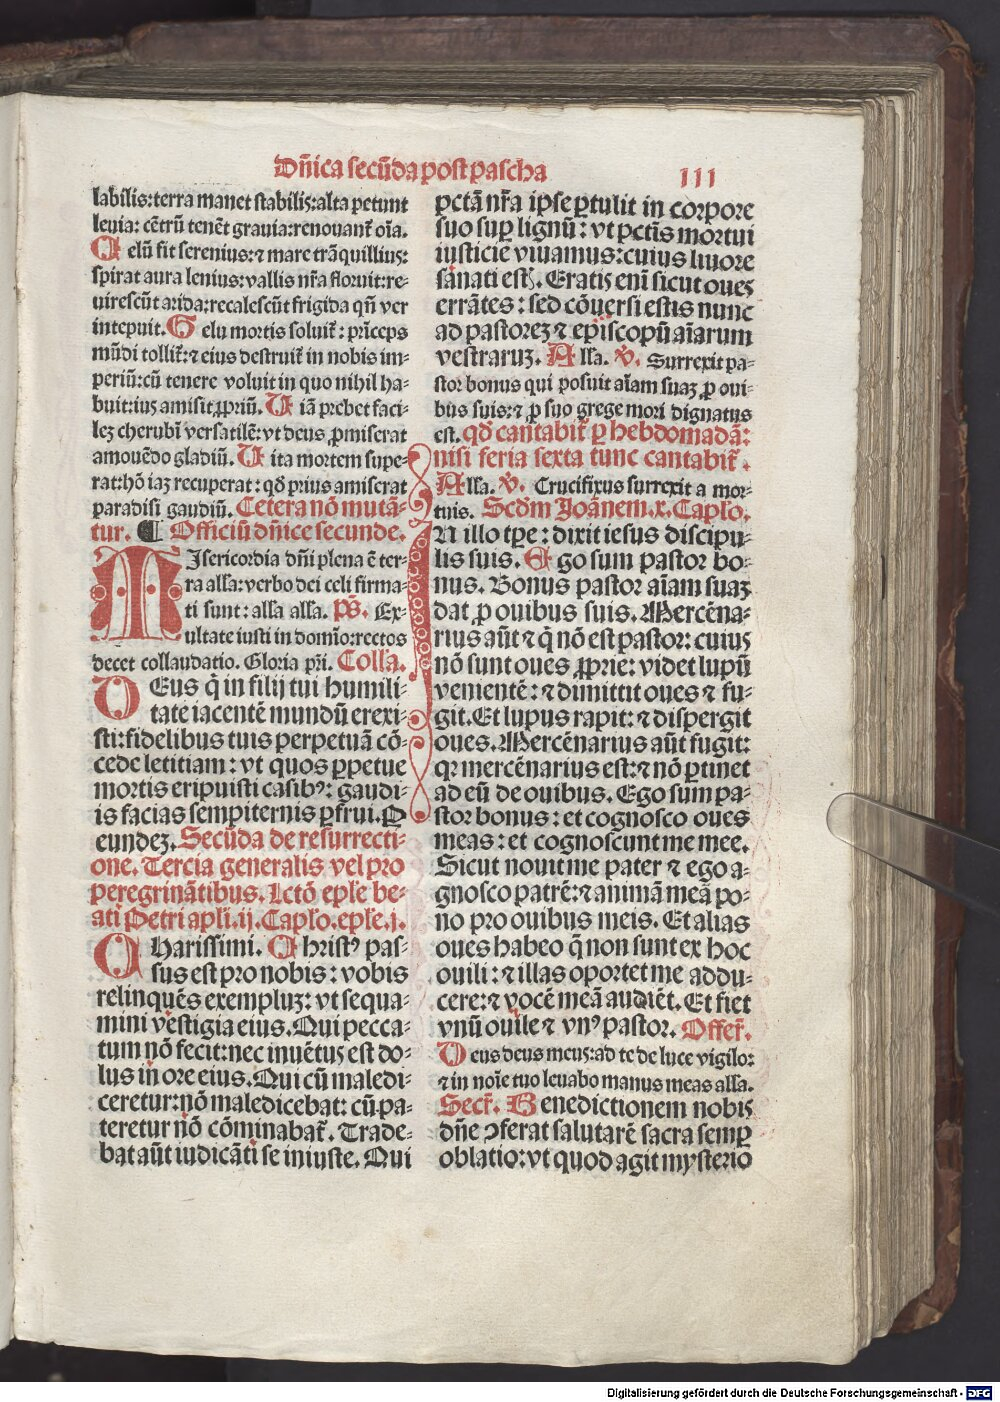 Dñica secūda post pascha
111
labilis: terra manet stabilis: alta petunt
leuia: cētrū tenēt grauia: renouant̄ oīa.
Celū fit serenius: ⁊ mare trāquillius:
spirat aura lenius: vallis nr̄a floruit: re⸗
uirescūt arida: recalescūt frigida qn̄ ver
intepuit. Gelu mortis soluit̄: prīceps
mūdi tollit̄: ⁊ eius destruit̄ in nobis im⸗
periū: cū tenere voluit in quo nihil ha⸗
buit: ius amisit ꝓpriū. Uiā prebet faci⸗
leꝫ cherubī versatilē: vt deus ꝓmiserat
amouēdo gladiū. Uita mortem supe⸗
rat: hō iaꝫ recuperat: qd̄ prius amiserat
paradisi gaudiū. Cetera nō mutā⸗
tur. ¶ Officiū dn̄ice secunde.
MIsericordia dn̄i plena ē ter⸗
ra alla: verbo dei celi firma⸗
ti sunt: alla alla. ps̄. Ex⸗
ultate iusti in domīo: rectos
decet collaudatio. Gloria pr̄i. Colla.
DEus q̄ in filij tui humili⸗
tate iacentē mundū erexi⸗
sti: fidelibus tuis perpetuā cō⸗
cede letitiam: vt quos ꝑpetue
mortis eripuisti casibꝰ: gaudi⸗
is facias sempiternis ꝑfrui. P
eundeꝫ. Secūda de resurrecti⸗
one. Tercia generalis vel pro
peregrinātibus. Lctō epl̄e be⸗
ati Petri apl̄i. ij. Capl̄o. epl̄e. j.
CHarissimi. Christꝰ pas⸗
sus est pro nobis: vobis
relinquēs exempluꝫ: vt sequa⸗
mini vestigia eius. Qui pecca⸗
tum nō fecit: nec inuētus est do⸗
lus in ore eius. Qui cū maledi⸗
ceretur: nō maledicebat: cū pa⸗
teretur nō cōminabat̄. Trade⸗
bat aūt iudicāti se iniuste. Qui
pctā nr̄a ipse ꝑtulit in corpore
suo suꝑ lignū: vt pctis̄ mortui
iusticie viuamus: cuius liuore
sanati estꝭ. Eratis enī sicut oues
errātes: sed cōuersi estis nunc
ad pastoreꝫ ⁊ episcopū aīarum
vestraruꝫ. Alla. ℣. Surrexit pa⸗
stor bonus qui posuit aīam suaꝫ ꝓ oui⸗
bus suis: ⁊ ꝓ suo grege mori dignatus
est. qd̄ cantabit̄ ꝑ hebdomadā:
nisi feria sexta tunc cantabit̄.
Alla. ℣. Crucifixus surrexit a mor⸗
tuis. Scd̄m Joānem. x. Capl̄o.
IN illo tꝑe: dixit iesus discipu⸗
lis suis. Ego sum pastor bo⸗
nus. Bonus pastor aīam suaꝫ
dat ꝓ ouibus suis. Mercēna⸗
rius aūt ⁊ q̄ nō est pastor: cuius
nō sunt oues ꝓprie: videt lupū
venientē: ⁊ dimittit oues ⁊ fu⸗
git. Et lupus rapit: ⁊ dispergit
oues. Mercēnarius aūt fugit:
qꝛ mercēnarius est: ⁊ nō ꝑtinet
ad eū de ouibus. Ego sum pa⸗
stor bonus: et cognosco oues
meas: et cognoscunt me mee.
Sicut nouit me pater ⁊ ego a⸗
gnosco patrē: ⁊ animā meā po⸗
no pro ouibus meis. Et alias
oues habeo q̄ non sunt ex hoc
ouili: ⁊ illas oportet me addu⸗
cere: ⁊ vocē meā audiēt. Et fiet
vnū ouile ⁊ vnꝰ pastor. Offer̄.
Deus deus meus: ad te de luce vigilo:
⁊ in noīe tuo leuabo manus meas alla.
Secr̄. Benedictionem nobis
dn̄e ꝯferat salutarē sacra semꝑ
oblatio: vt quod agit mysterio
Digitalisierung gefördert durch die Deutsche Forschungsgemeinschaft - DFG